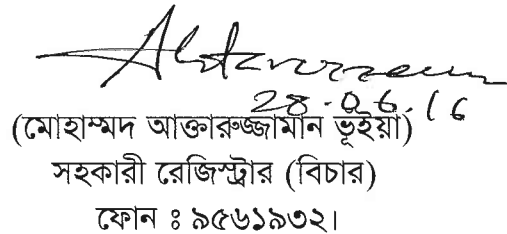 28.06.16
(মোহাম্মদ আক্তারুজ্জামান ভূইয়া)
সহকারী রেজিস্ট্রার (বিচার)
ফোন ঃ ৯৫৬১৯৩২।